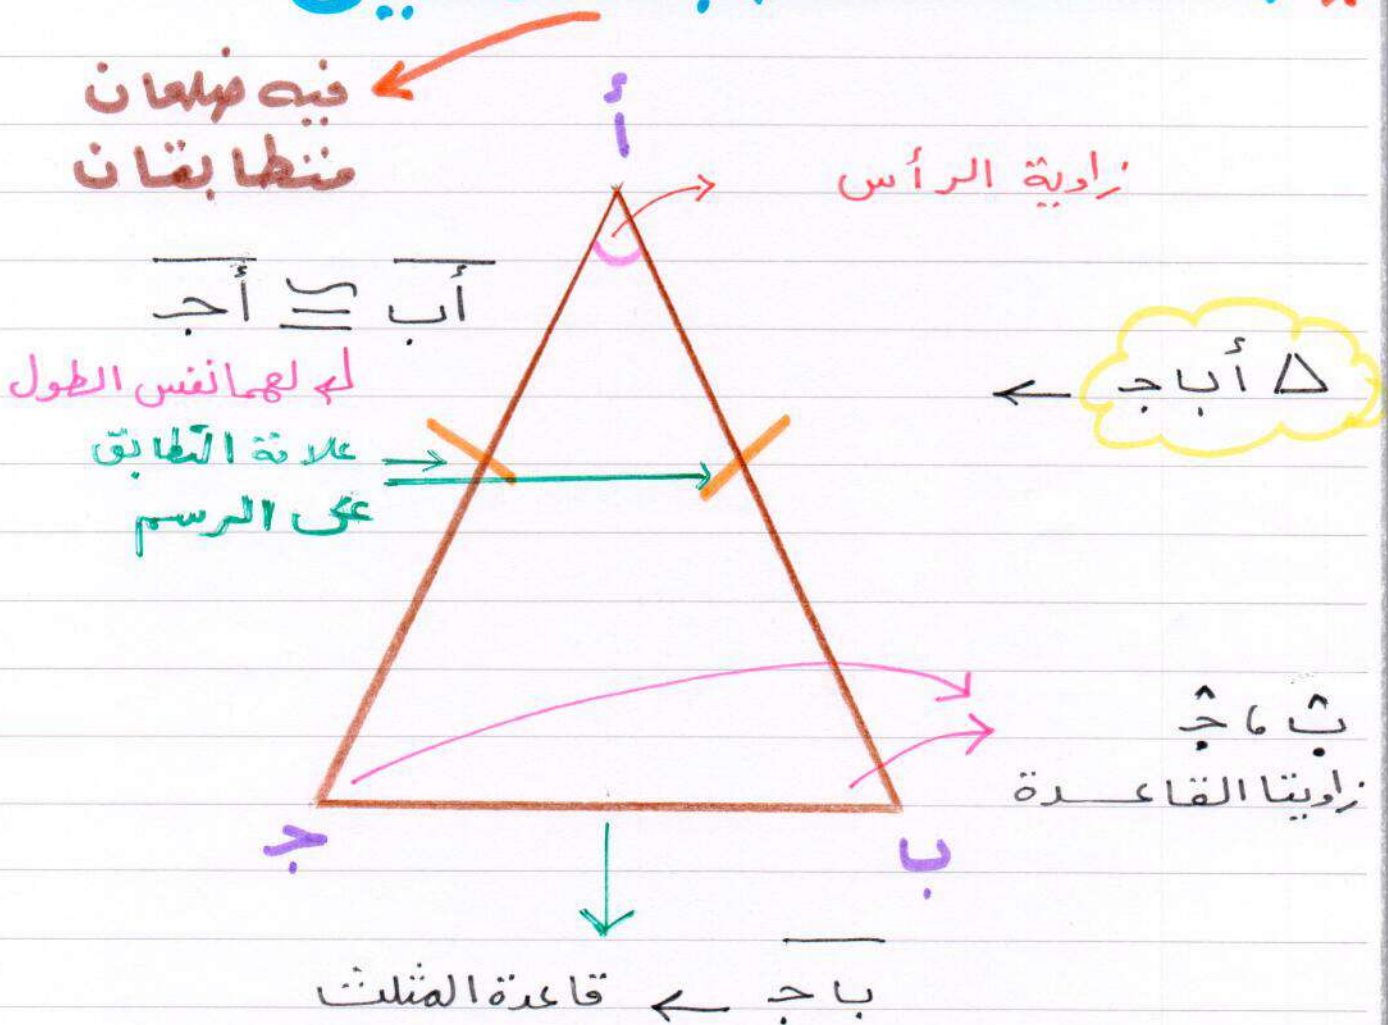 فيه ضلعان
متطابقان
أ
زاوية الرأس
أب ≅ أجـ
لهما نفس الطول
△ أب جـ ←
علامة التطابق
على الرسم
بُ ، جـُ
زاويتا القاعدة
جـ
ب
ب جـ ← قاعدة المثلث